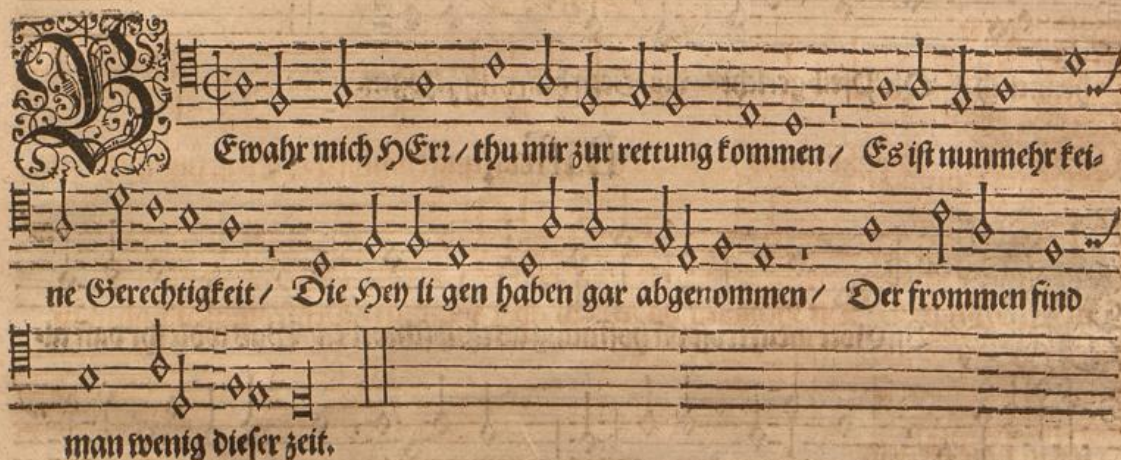 BEwahr mich HErr / thu mir zur rettung kommen / Es ist nunmehr kei-
ne Gerechtigkeit / Die Hey li gen haben gar abgenommen / Der frommen find
man wenig dieser zeit.